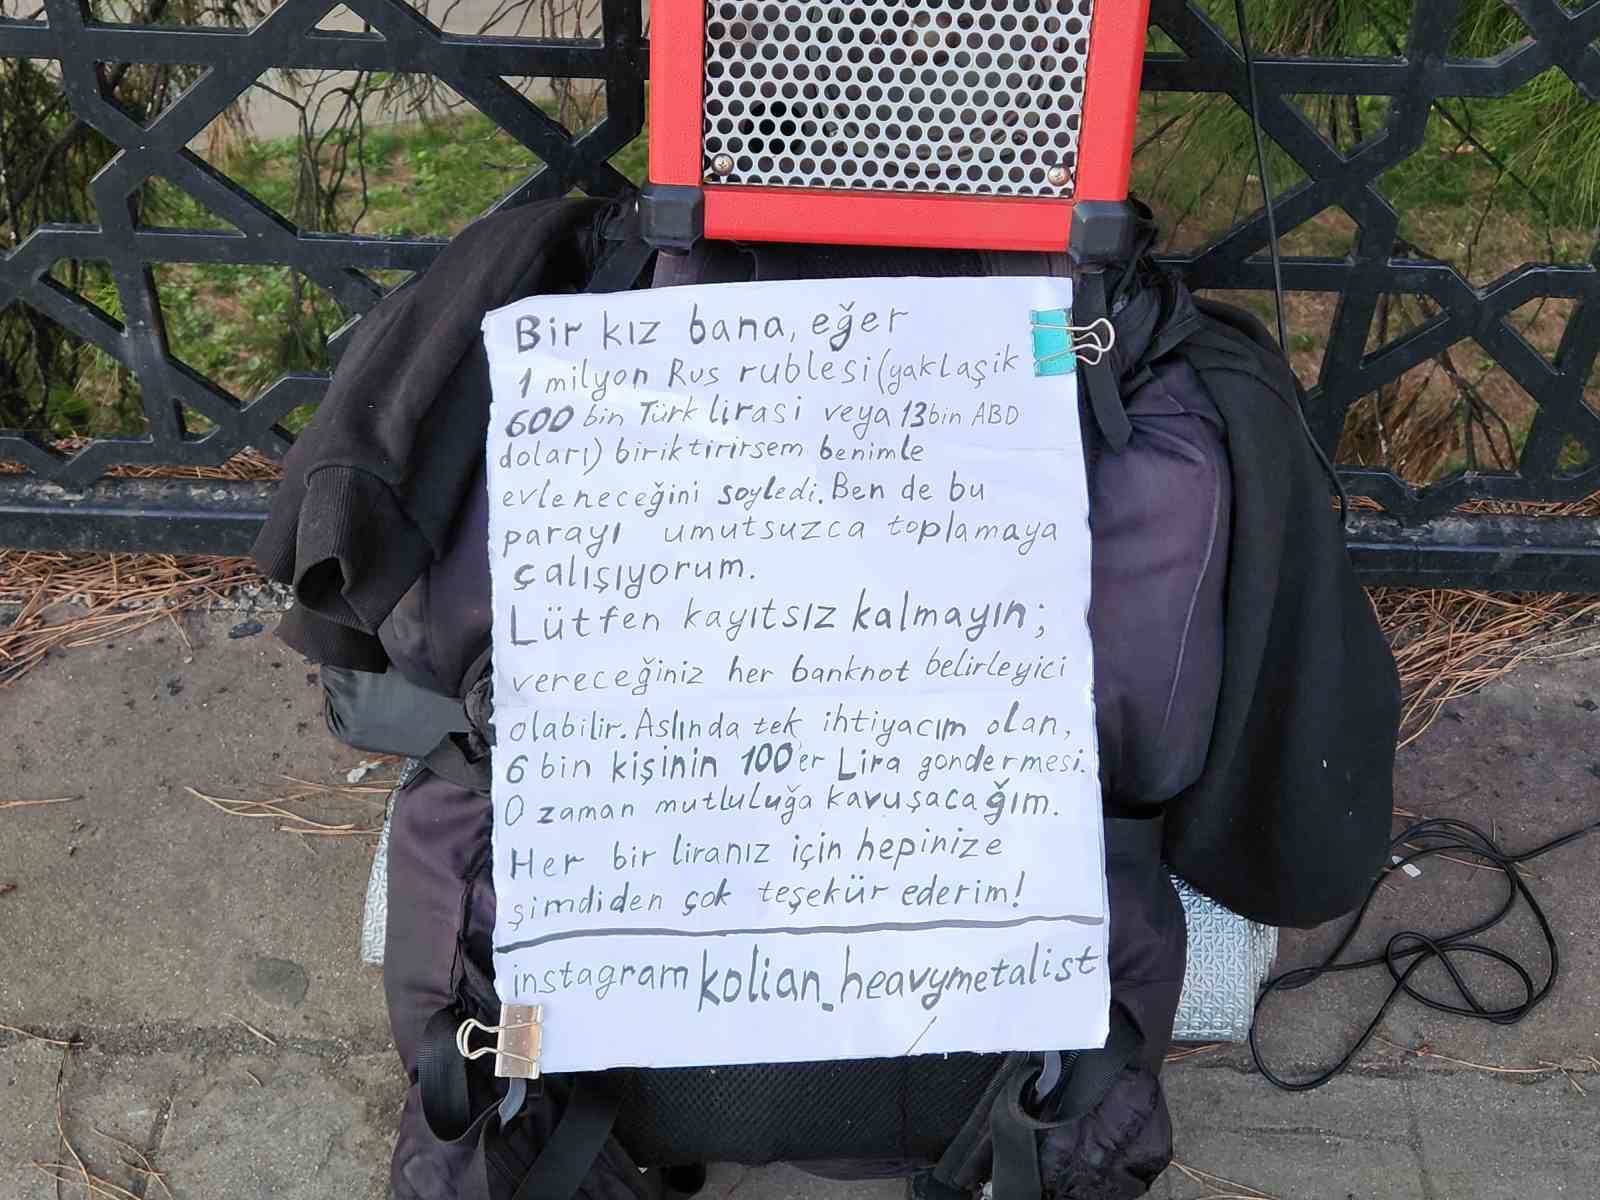 Bir kız bana, eğer
1 milyon Rus rublesi (yaklaşik
600 bin Türk lirasi veya 13 bin ABD
doları) biriktirirsem benimle
evleneceğini soyledi. Ben de bu
parayı umutsuzca toplamaya
çalışıyorum.
Lütfen kayıtsız kalmayın;
vereceğiniz her banknot belirleyici
olabilir. Aslında tek ihtiyacım olan,
6 bin kişinin 100'er Lira gondermesi.
O zaman mutluluğa kavuşacağım.
Her bir liranız için hepinize
şimdiden çok teşekür ederim!
instagram kolian_heavymetalist